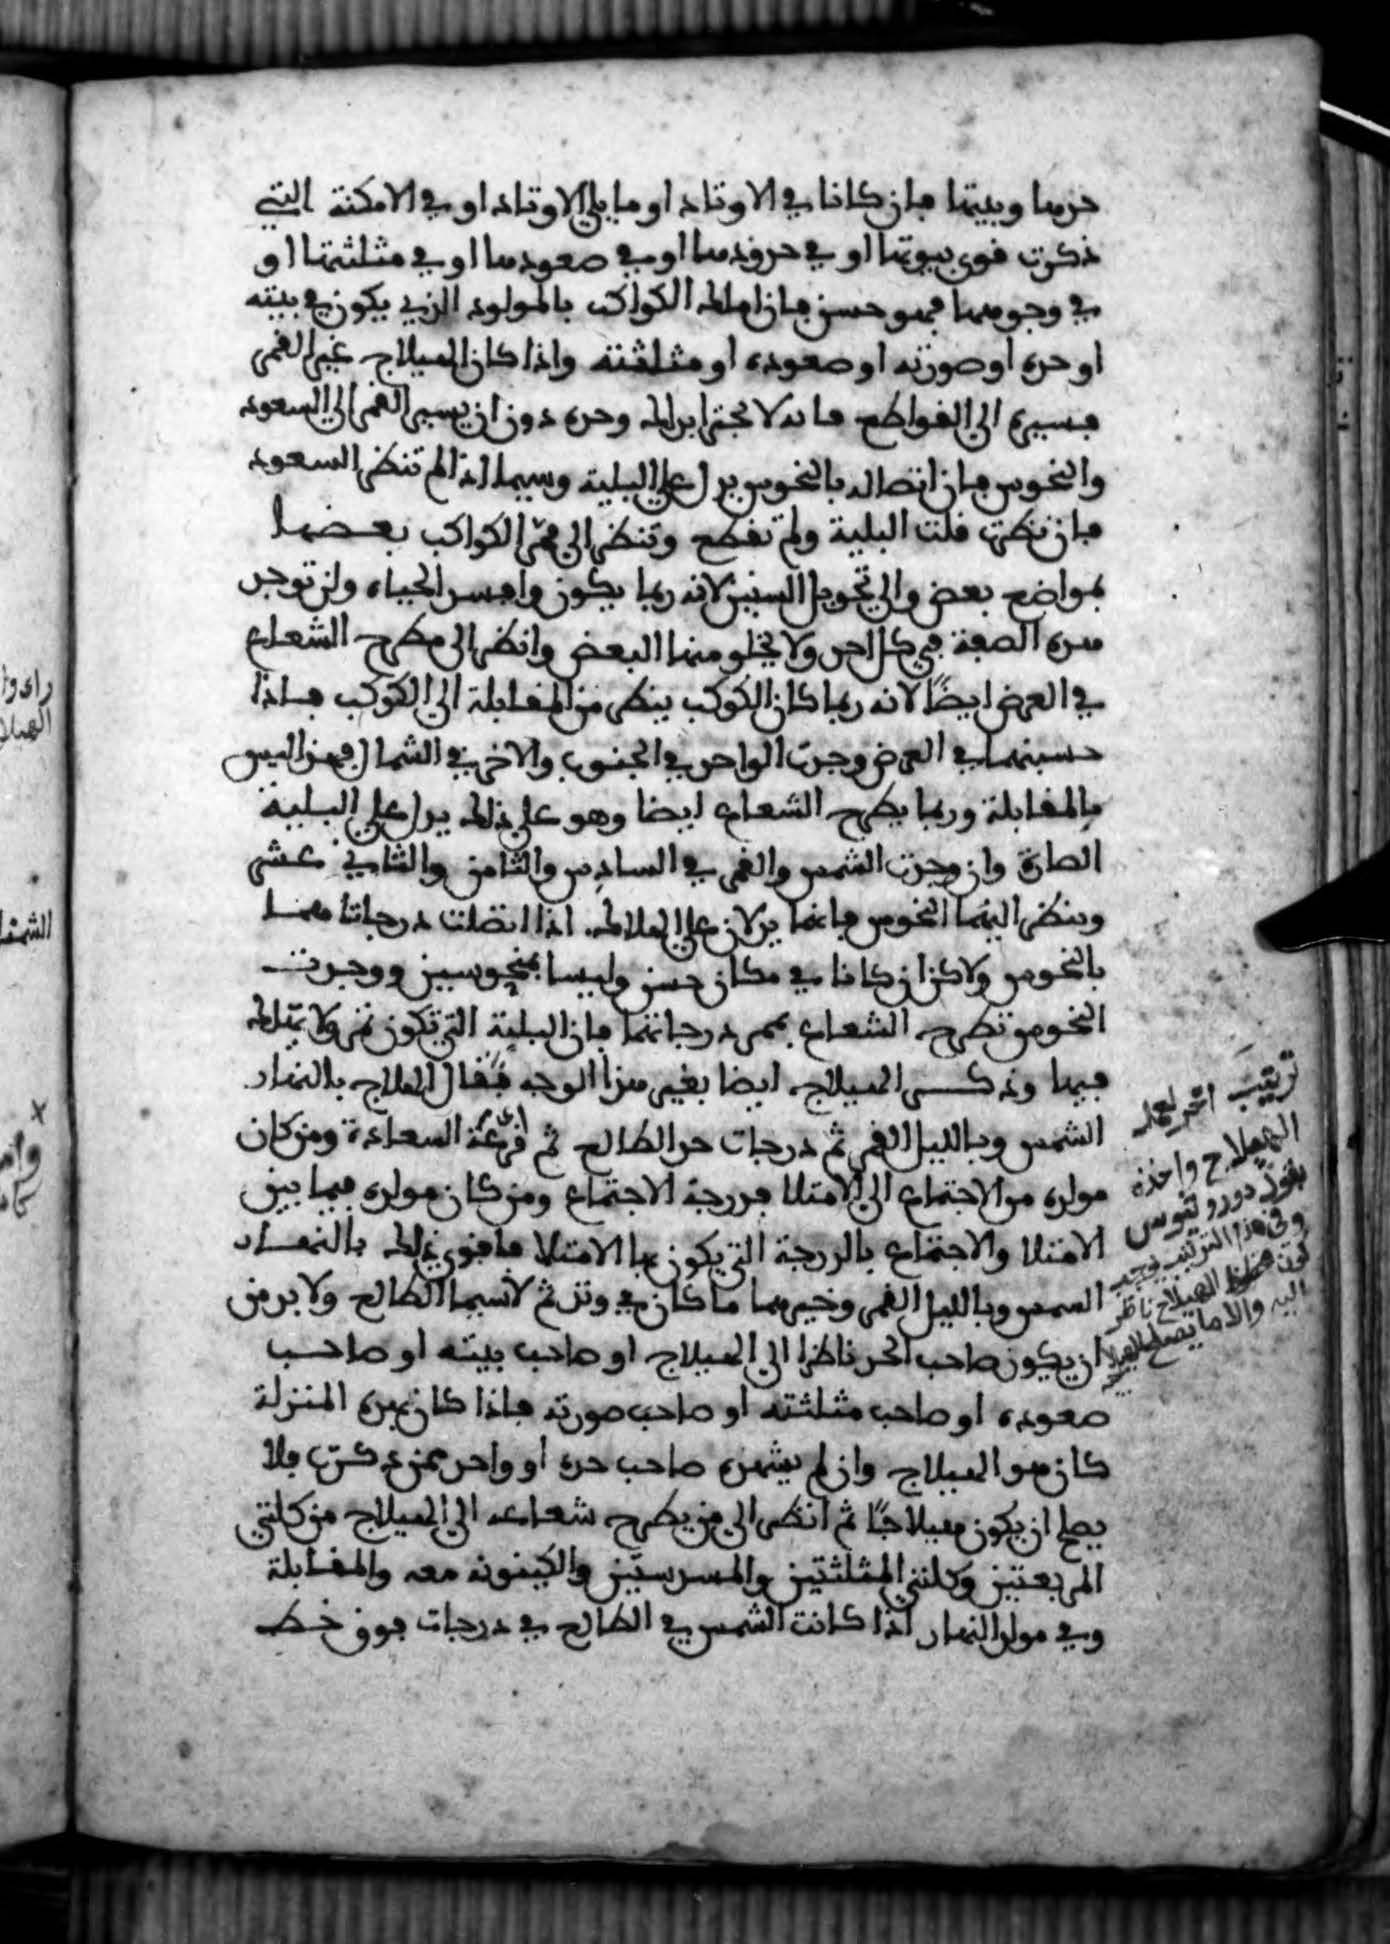 حدهما وبيتهما فإن كانا في الاوتاد او ما يلي الاوتاد او في الامكنة التي
ذكرت فوق بيوتهما او في حدودهما او في صعودهما او في مثلثتهما او
في وجوههما فهو حسن فان املك الكواكب بالمولود الذي يكون في بيته
او حده او صورته او صعوده او مثلثته واذا كان الهيلاج غير القمر
فسيره الى القواطع فانه لا يجتزا بذلك وحده دون ان يسير القمر الى السعود
والنحوس فان اتصاله بالنحوس يدل على البلية وسيما اذا لم تنظر السعود
فان نظرت قلت البلية ولم تقطع وتنظر الى ممر الكواكب بعضها
بمواضع بعض والى تحويل السنين لانه ربما يكون وافسد الحياة ولن توجد
هذه الصفة في كل احد ولا يخلو منها البعض وانظر الى مطرح الشعاع
في العرض ايضًا لانه ربما كان الكوكب ينظر من المقابلة الى الكوكب فاذا
حسبتهما في العرض وجدت الواحد في الجنوب والاخر في الشمال فهذا ليس
بالمقابلة وربما يطرح الشعاع ايضا وهو على ذلك يدل على البلية
الضارة وان وجدت الشمس والقمر في السادس والثامن والثاني عشر
وينظر اليهما النحوس فانهما يدلان على الهلاك اذا اتصلت درجاتهما
بالنحوس ولاكن ان كانا في مكان حسن وليسا بمنحوسين ووجدت
النحوس تطرح الشعاع بممر درجاتهما فان البلية التي تكون تمر ولا يهلك
فيها وذكر الهيلاج ايضا بغير هذا الوجه فقال الهلاج بالنهار
الشمس وبالليل القمر ثم درجات حد الطالع ثم قرعة السعادة ومن كان
مولده من الاجتماع الى الامتلا فدرجة الاجتماع ومن كان مولده فيما بين
الامتلا والاجتماع بالدرجة التي يكون بها الامتلا فاقوى ذلك بالنهار
الشمس وبالليل القمر وخيرهما ما كان في وتد ثم لاسيما الطالع ولا بد من
ان يكون صاحب الحد ناظرا الى الهيلاج او صاحب بيته او صاحب
صعوده او صاحب مثلثته او صاحب صورته فاذا كان بهذه المنزلة
كان هو الهيلاج وان لم يشهده صاحب حده او واحد ممن ذكرت فلا
يصلح ان يكون هيلاجًا ثم انظر الى من يطرح شعاعه الى الهيلاج من كلتي
المربعتين وكلتي المثلثتين والمسدستين والكينونة معه والمقابلة
وفي مولد النهار اذا كانت الشمس في الطالع في درجات فوق خط
ترتيب اخر لعد
الهيلاج واخذه
بقول دوروثيوس
وفي هذا الترتيب يوجب
كون الهيلاج ناظر
اليه والا ما يصلح للهيلاج